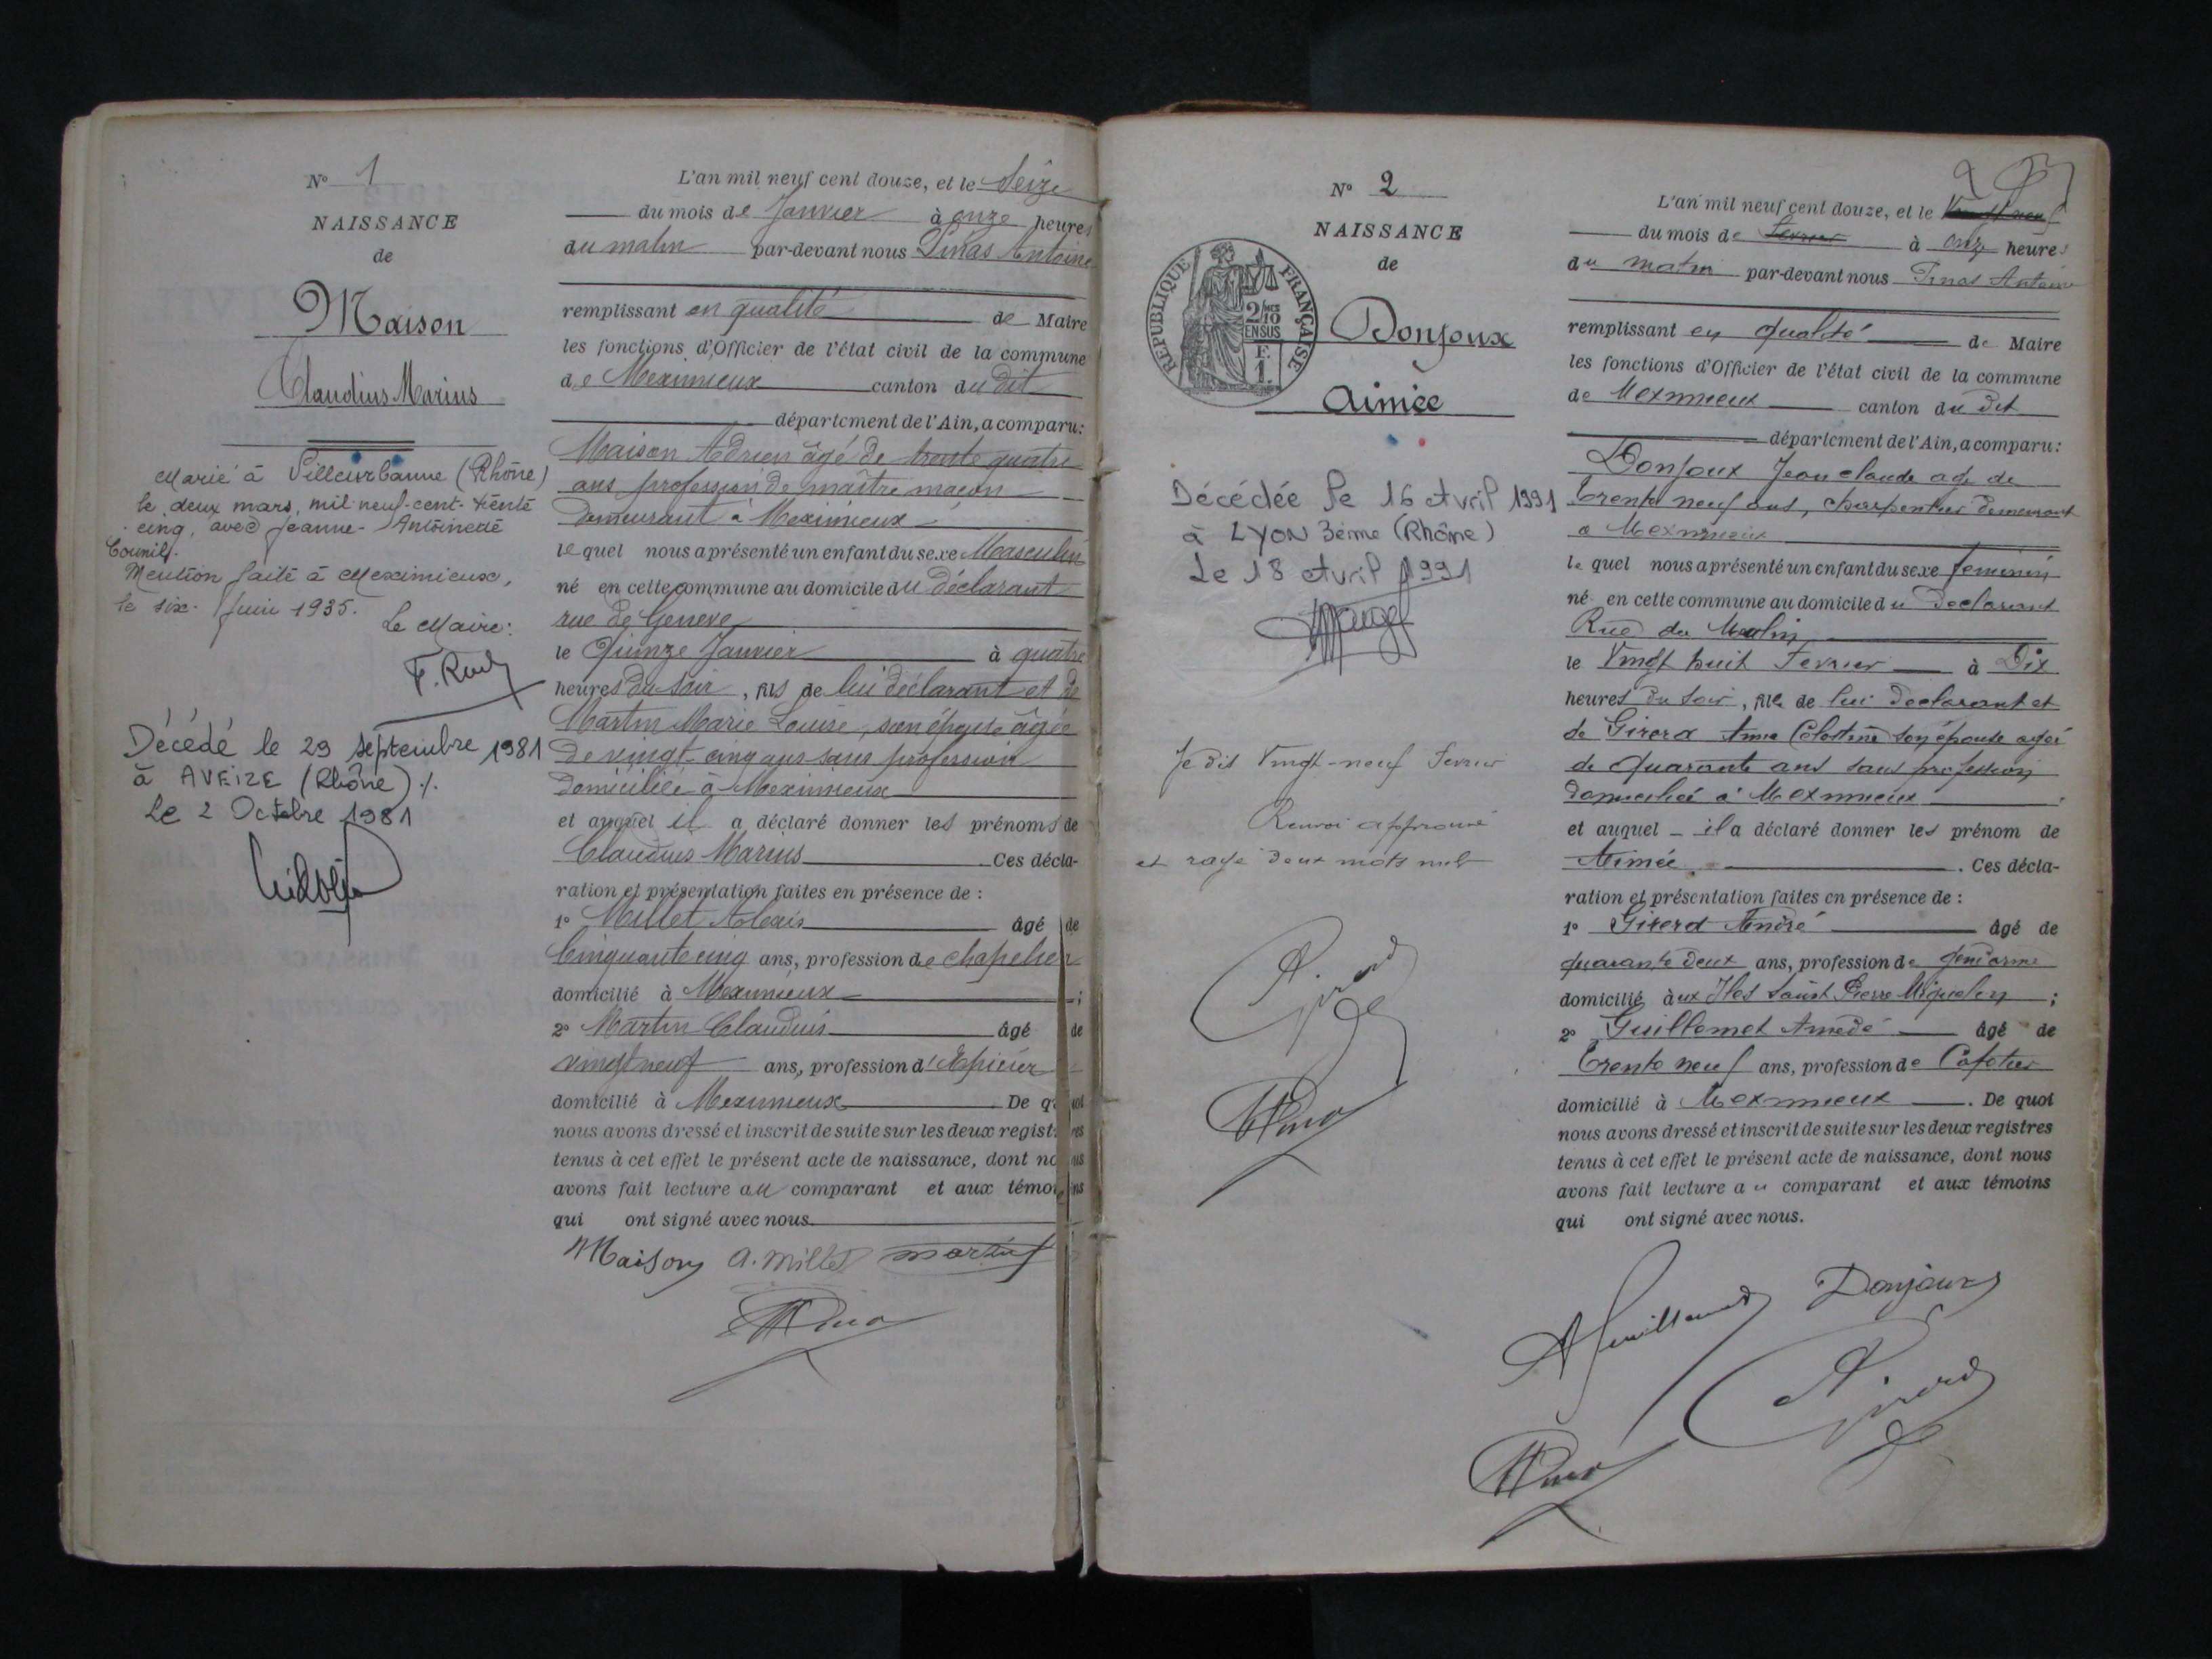 N° 1
NAISSANCE
de
Maison
Claudius Marius
Marié à Villeurbanne (Rhône)
le deux mars, mil neuf-cent-trente
cinq, avec Jeanne-Antoinette
Mention faite à Meximieux,
le six Juin 1935.
Le Maire:
Décédé le 29 septembre 1981
à AVEIZE (Rhône) ./.
Le 2 Octobre 1981
L'an mil neuf cent douze, et le Seize
du mois de Janvier à onze heures
du matin par-devant nous Pinas Antoine
remplissant en qualité de Maire
les fonctions d'Officier de l'état civil de la commune
de Meximieux canton du dit
département de l'Ain, a comparu:
Maison Adrien âgé de trente quatre
ans profession de maître maçon
demeurant à Meximieux
lequel nous a présenté un enfant du sexe Masculin
né en cette commune au domicile du déclarant
rue de Genève
le Quinze Janvier à quatre
heures du soir, fils de lui déclarant et de
Martin Marie Louise, son épouse âgée
de vingt-cinq ans sans profession
domiciliée à Meximieux
et auquel il a déclaré donner les prénoms de
Claudius Marius Ces décla-
ration et présentation faites en présence de :
1° Millet Alexis âgé de
Cinquante cinq ans, profession de chapelier
domicilié à Meximieux ;
2° Martin Claudius âgé de
vingt neuf ans, profession d'Epicier
domicilié à Meximieux De quoi
nous avons dressé et inscrit de suite sur les deux registres
tenus à cet effet le présent acte de naissance, dont nous
avons fait lecture au comparant et aux témoins
qui ont signé avec nous.
Maison A. Millet Martin
N° 2
NAISSANCE
de
REPUBLIQUE FRANÇAISE
2/10 EN SUS
F. 1.
Donjoux
Aimée
Décédée le 16 Avril 1991
à LYON 3ème (Rhône)
Le 18 Avril 1991
Je dis Vingt-neuf Fevrier
Renvoi approuvé
et rayé deux mots nuls
2
L'an mil neuf cent douze, et le Vingt neuf
du mois de Fevrier à onze heures
du matin par-devant nous Pinas Antoine
remplissant en qualité de Maire
les fonctions d'Officier de l'état civil de la commune
de Meximieux canton du dit
département de l'Ain, a comparu:
Donjoux Jean claude agé de
trente neuf ans, charpentier demeurant
a Meximieux
le quel nous a présenté un enfant du sexe feminin
né en cette commune au domicile du declarant
Rue du Moulin
le Vingt huit Fevrier à Dix
heures du soir, fille de lui declarant et
de Girerd Anne Celestine son épouse agée
de Quarante ans sans profession
domiciliée à Meximieux
et auquel il a déclaré donner les prénom de
Aimée . Ces décla-
ration et présentation faites en présence de :
1° Girerd André âgé de
quarante deux ans, profession de gendarme
domicilié aux Iles Saint Pierre Miquelon ;
2° Guillemet Amédé âgé de
trente neuf ans, profession de Cafetier
domicilié à Meximieux . De quoi
nous avons dressé et inscrit de suite sur les deux registres
tenus à cet effet le présent acte de naissance, dont nous
avons fait lecture au comparant et aux témoins
qui ont signé avec nous.
Donjoux